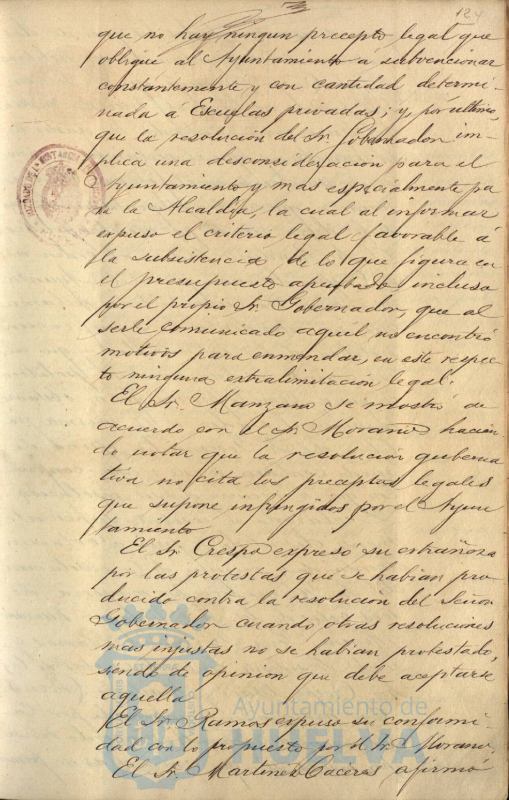 124
que no hay ningun precepto legal que
oblique al Ayuntamiento a subvencionar
constantemente y con cantidad determi-
nada á Escuelas privadas; y, por ultimo,
que la resolución del Sr. Gobernador im-
plica una desconsideración para el
Ayuntamiento y mas especialmente pa
ra la Alcaldia, la cual al informar
expuso el criterio legal favorable á
la subsistencia de lo que figura en
el presupuesto aprobado incluso
por el propio Sr. Gobernador, que al
serle comunicado aquel no encontró
motivos para enmendar, en este respec-
to ninguna extralimitación legal.
El Sr. Manzano se mostró de
acuerdo con el Sr. Moraño hacien
do notar que la resolución guberna
tiva no cita los preceptos legales
que supone infringidos por el Ayun
tamiento
El Sr. Crespo expresó su extrañeza
por las protestas que se habian pro
ducido contra la resolución del Señor
Gobernador cuando otras resoluciones
mas injustas no se habian protestado,
siendo de opinion que debe aceptarse
aquella
El Sr. Ramos expuso su conformi-
dad con lo propuesto por el Sr. Moraño.
El Sr. Martinez Caceres afirmó
Ayuntamiento de
HUELVA